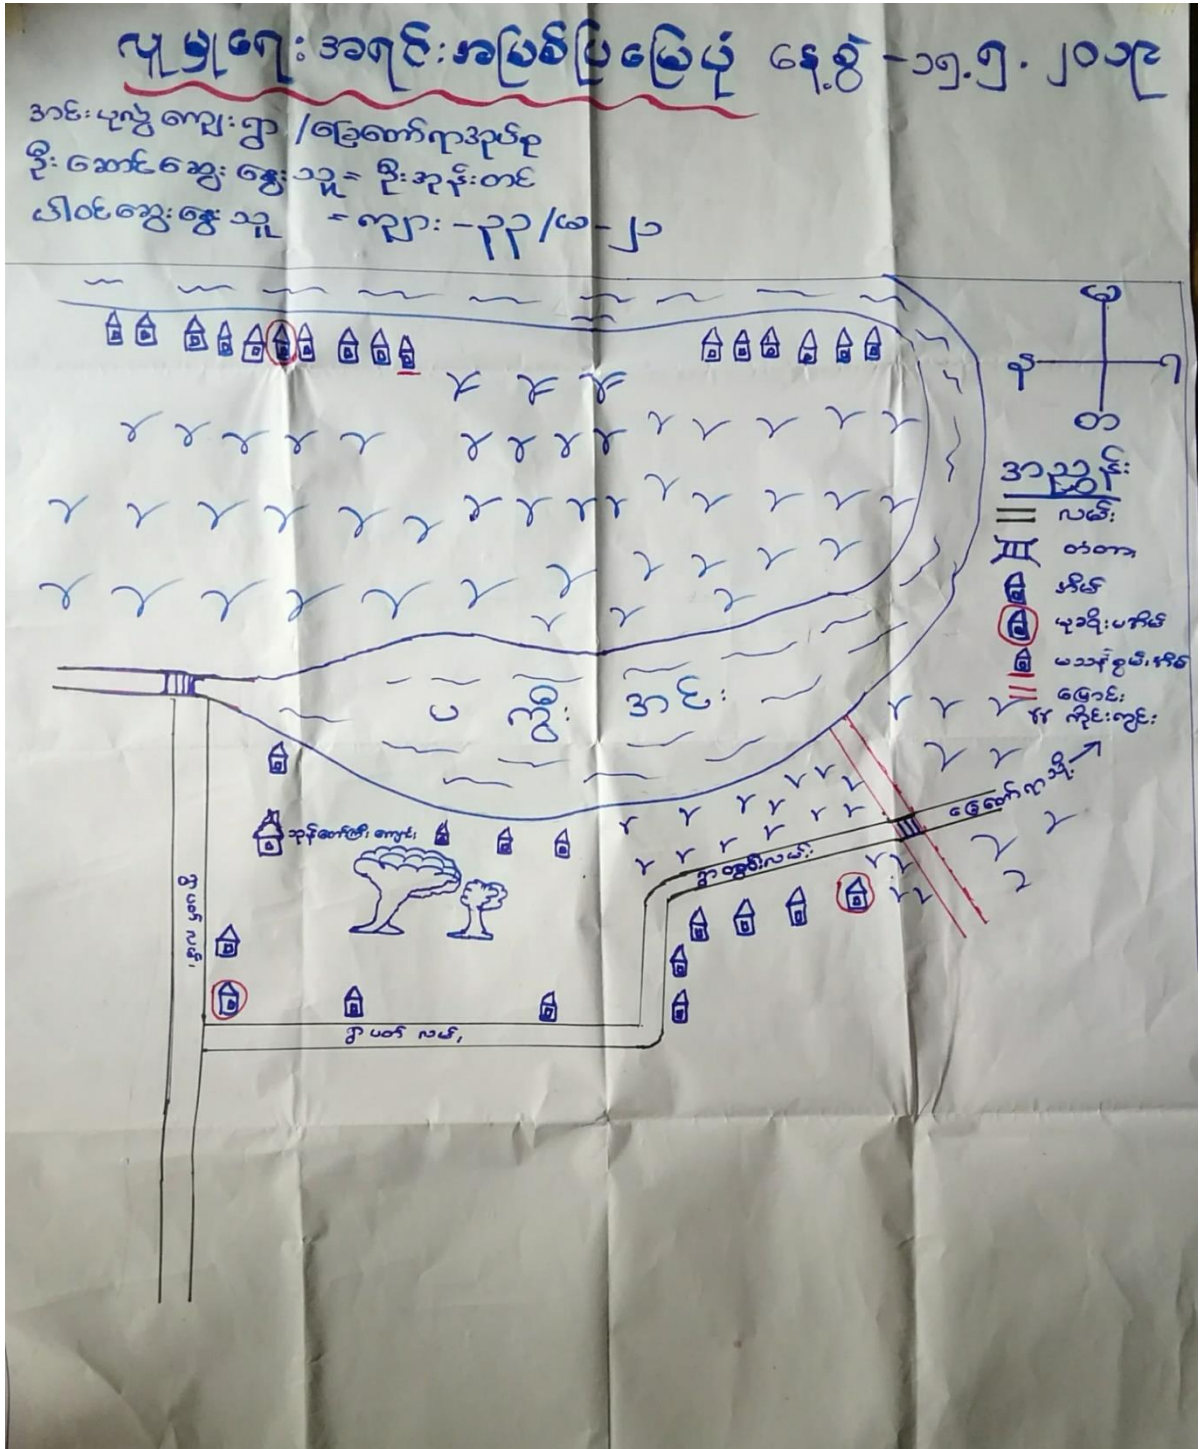 လူမှုရေးအရင်းအမြစ်ပြမြေပုံ နေ့စွဲ - ၁၅.၅.၂၀၁၉
အင်းပုလွဲကျေးရွာ /ခြေတော်ရာအုပ်စု
ဦးဆောင်ဆွေးနွေးသူ = ဦးအုန်းတင်
ပါဝင်ဆွေးနွေးသူ = ကျား - ၃၃/မ - ၂၁
မ
န
ရ
တ
အညွှန်း
လမ်း
တံတား
အိမ်
မသန်စွမ်းအိမ်
မြောင်း
ကိုင်းကျွင်း
ပကွီးအင်း
ခြေတော်ရာသို့
ဘုန်တော်ကြီးကျောင်း
ရွာတွင်းလမ်း
ရွာပတ်လမ်း
ရွာပတ်လမ်း